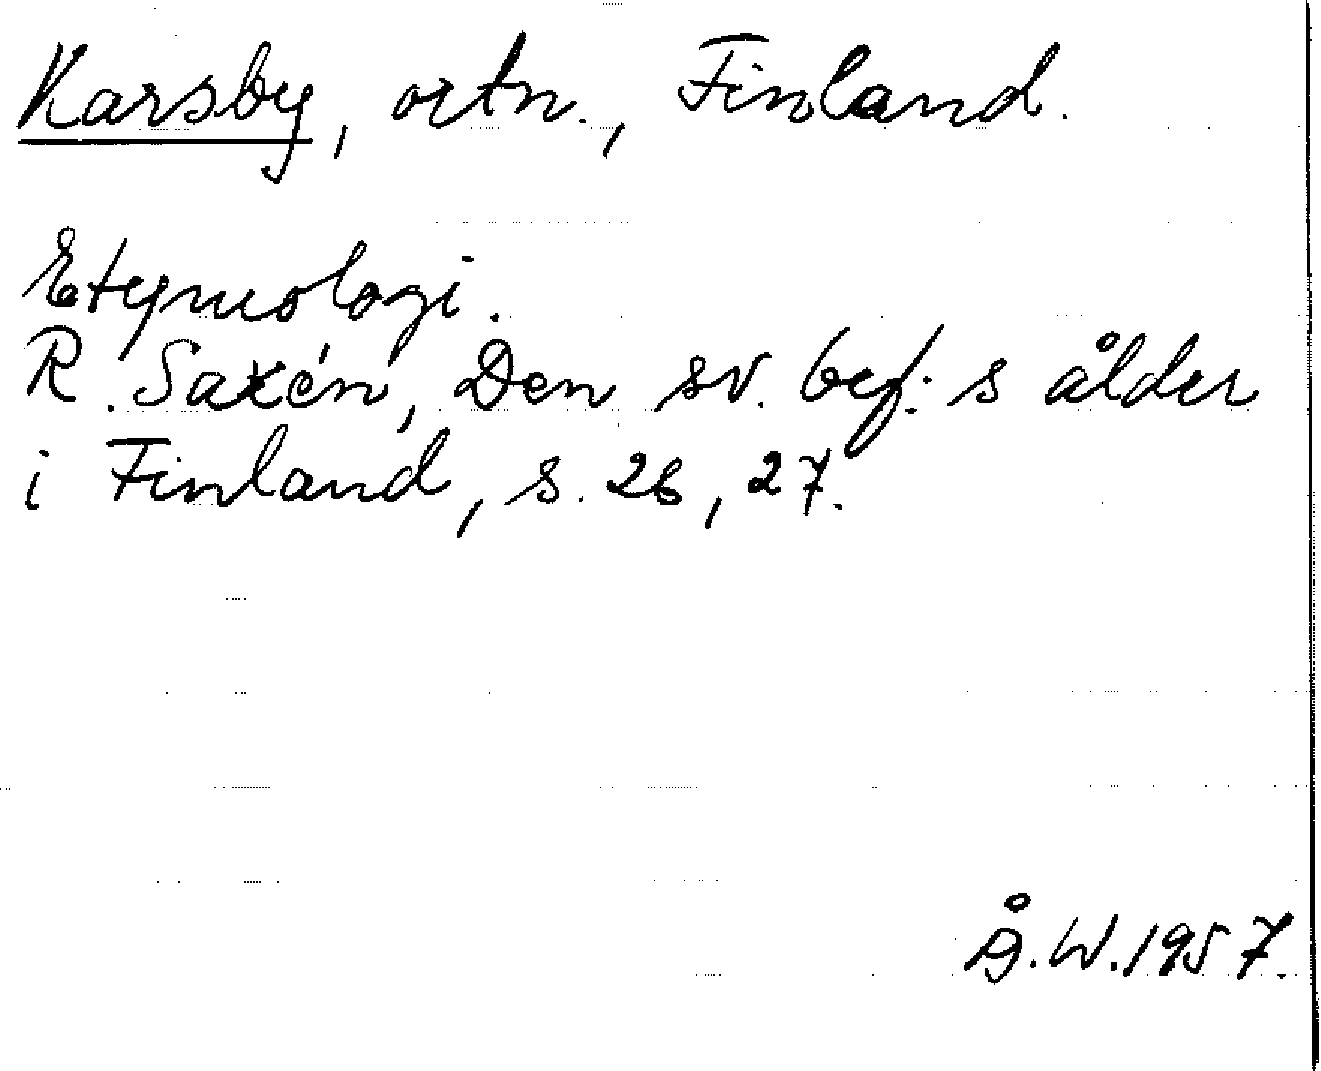 Karsby, ortn., Finland.
Etymologi.
R. Saxén, Den sv. bef:s ålder
i Finland, s. 26, 27.
Å.W.1957.